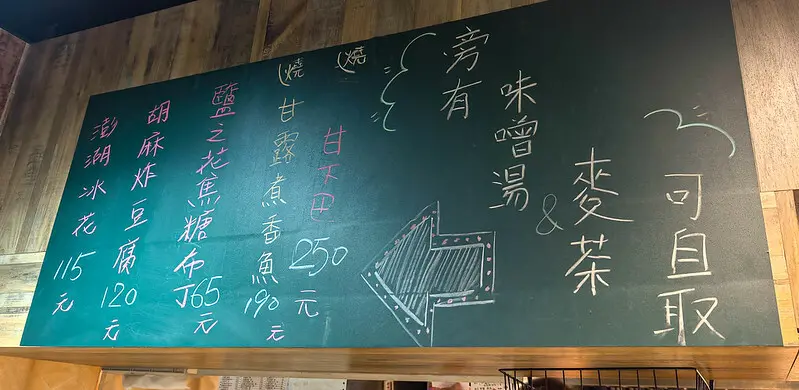 澎湖冰花 115元
胡麻炸豆腐 120元
鹽之花焦糖布丁 65元
(燒) 甘露煮香魚 190元
(燒) 甘不田 250元
旁有
味噌湯
&
麥茶
可自取